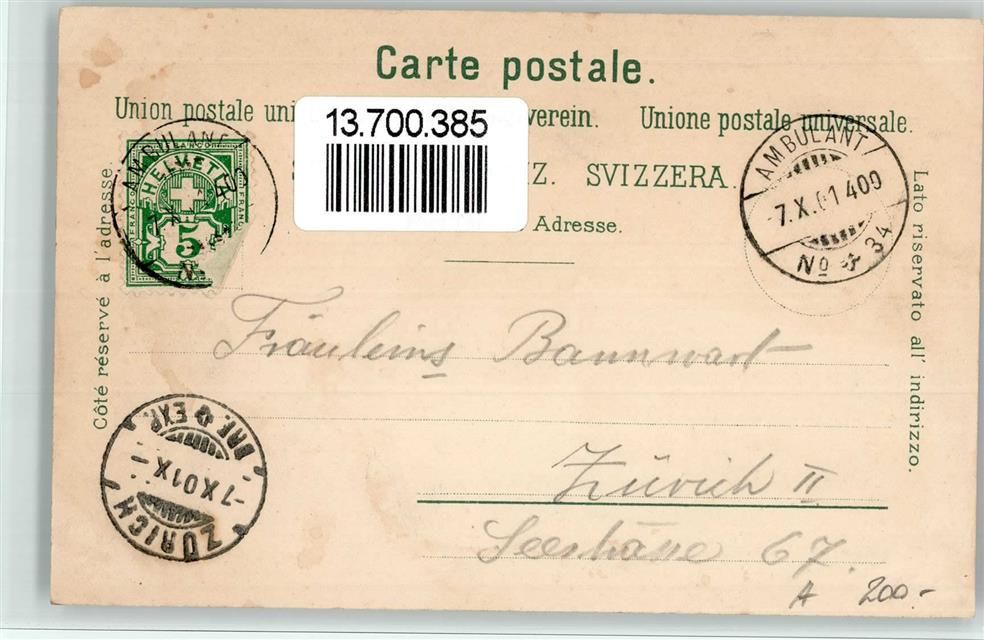 Carte postale.
Union postale uni verein. Unione postale universale.
13.700.385
Z. SVIZZERA.
Adresse.
Côté réservé à l'adresse.
Lato riservato all' indirizzo.
AMBULANT
FRANCO
HELVETIA
FRANCO FRANCO
5
No
AMBULANT
7.X.01 409
No 34
Fräuleins Bannwart
Zürich II
Seestrasse 67.
BRF. EXP.
-7.X.01 X-
ZÜRICH
A 200.-